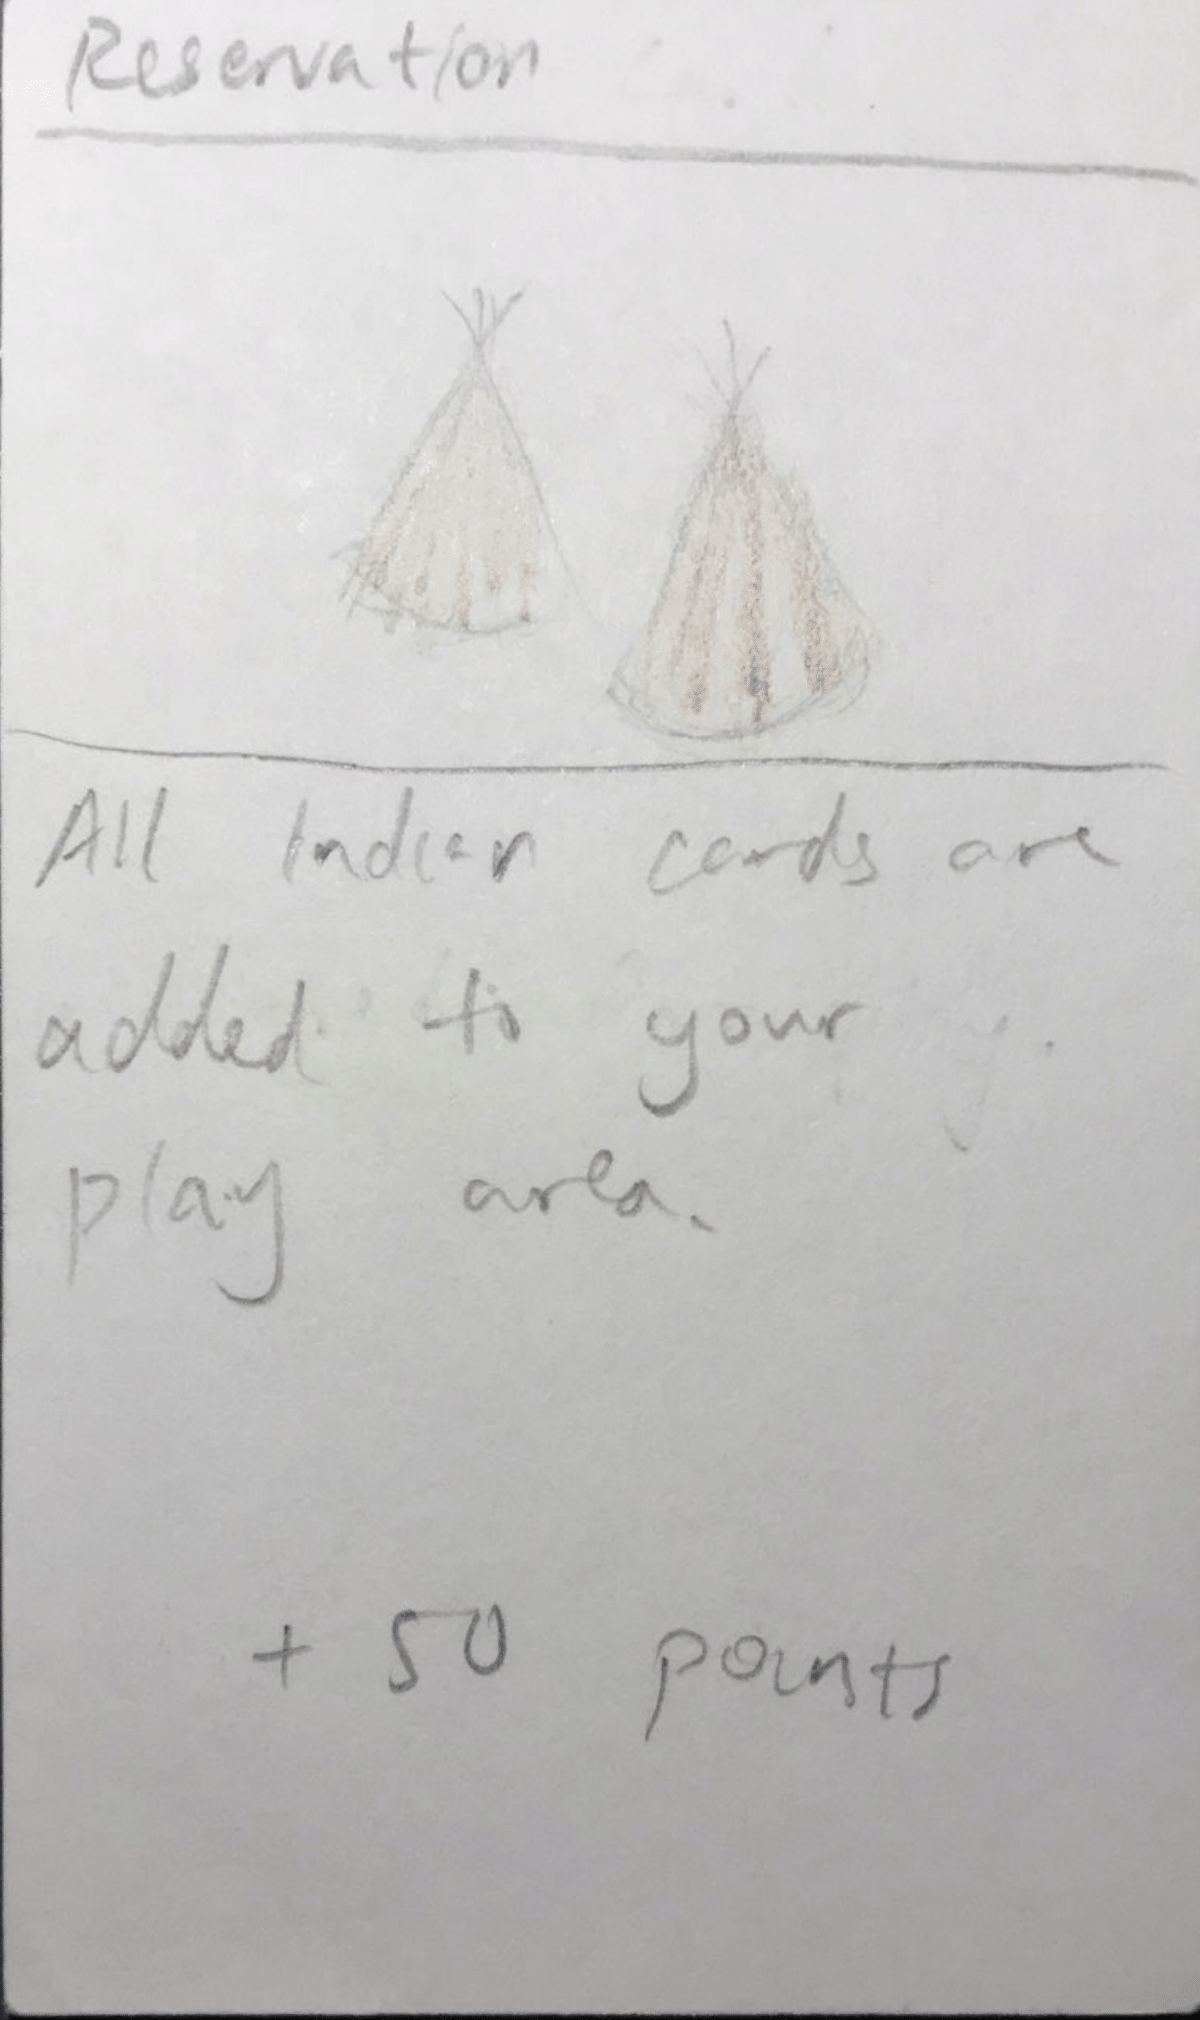 Reservation
All Indian cards are
added to your
play area.
+ 50 points